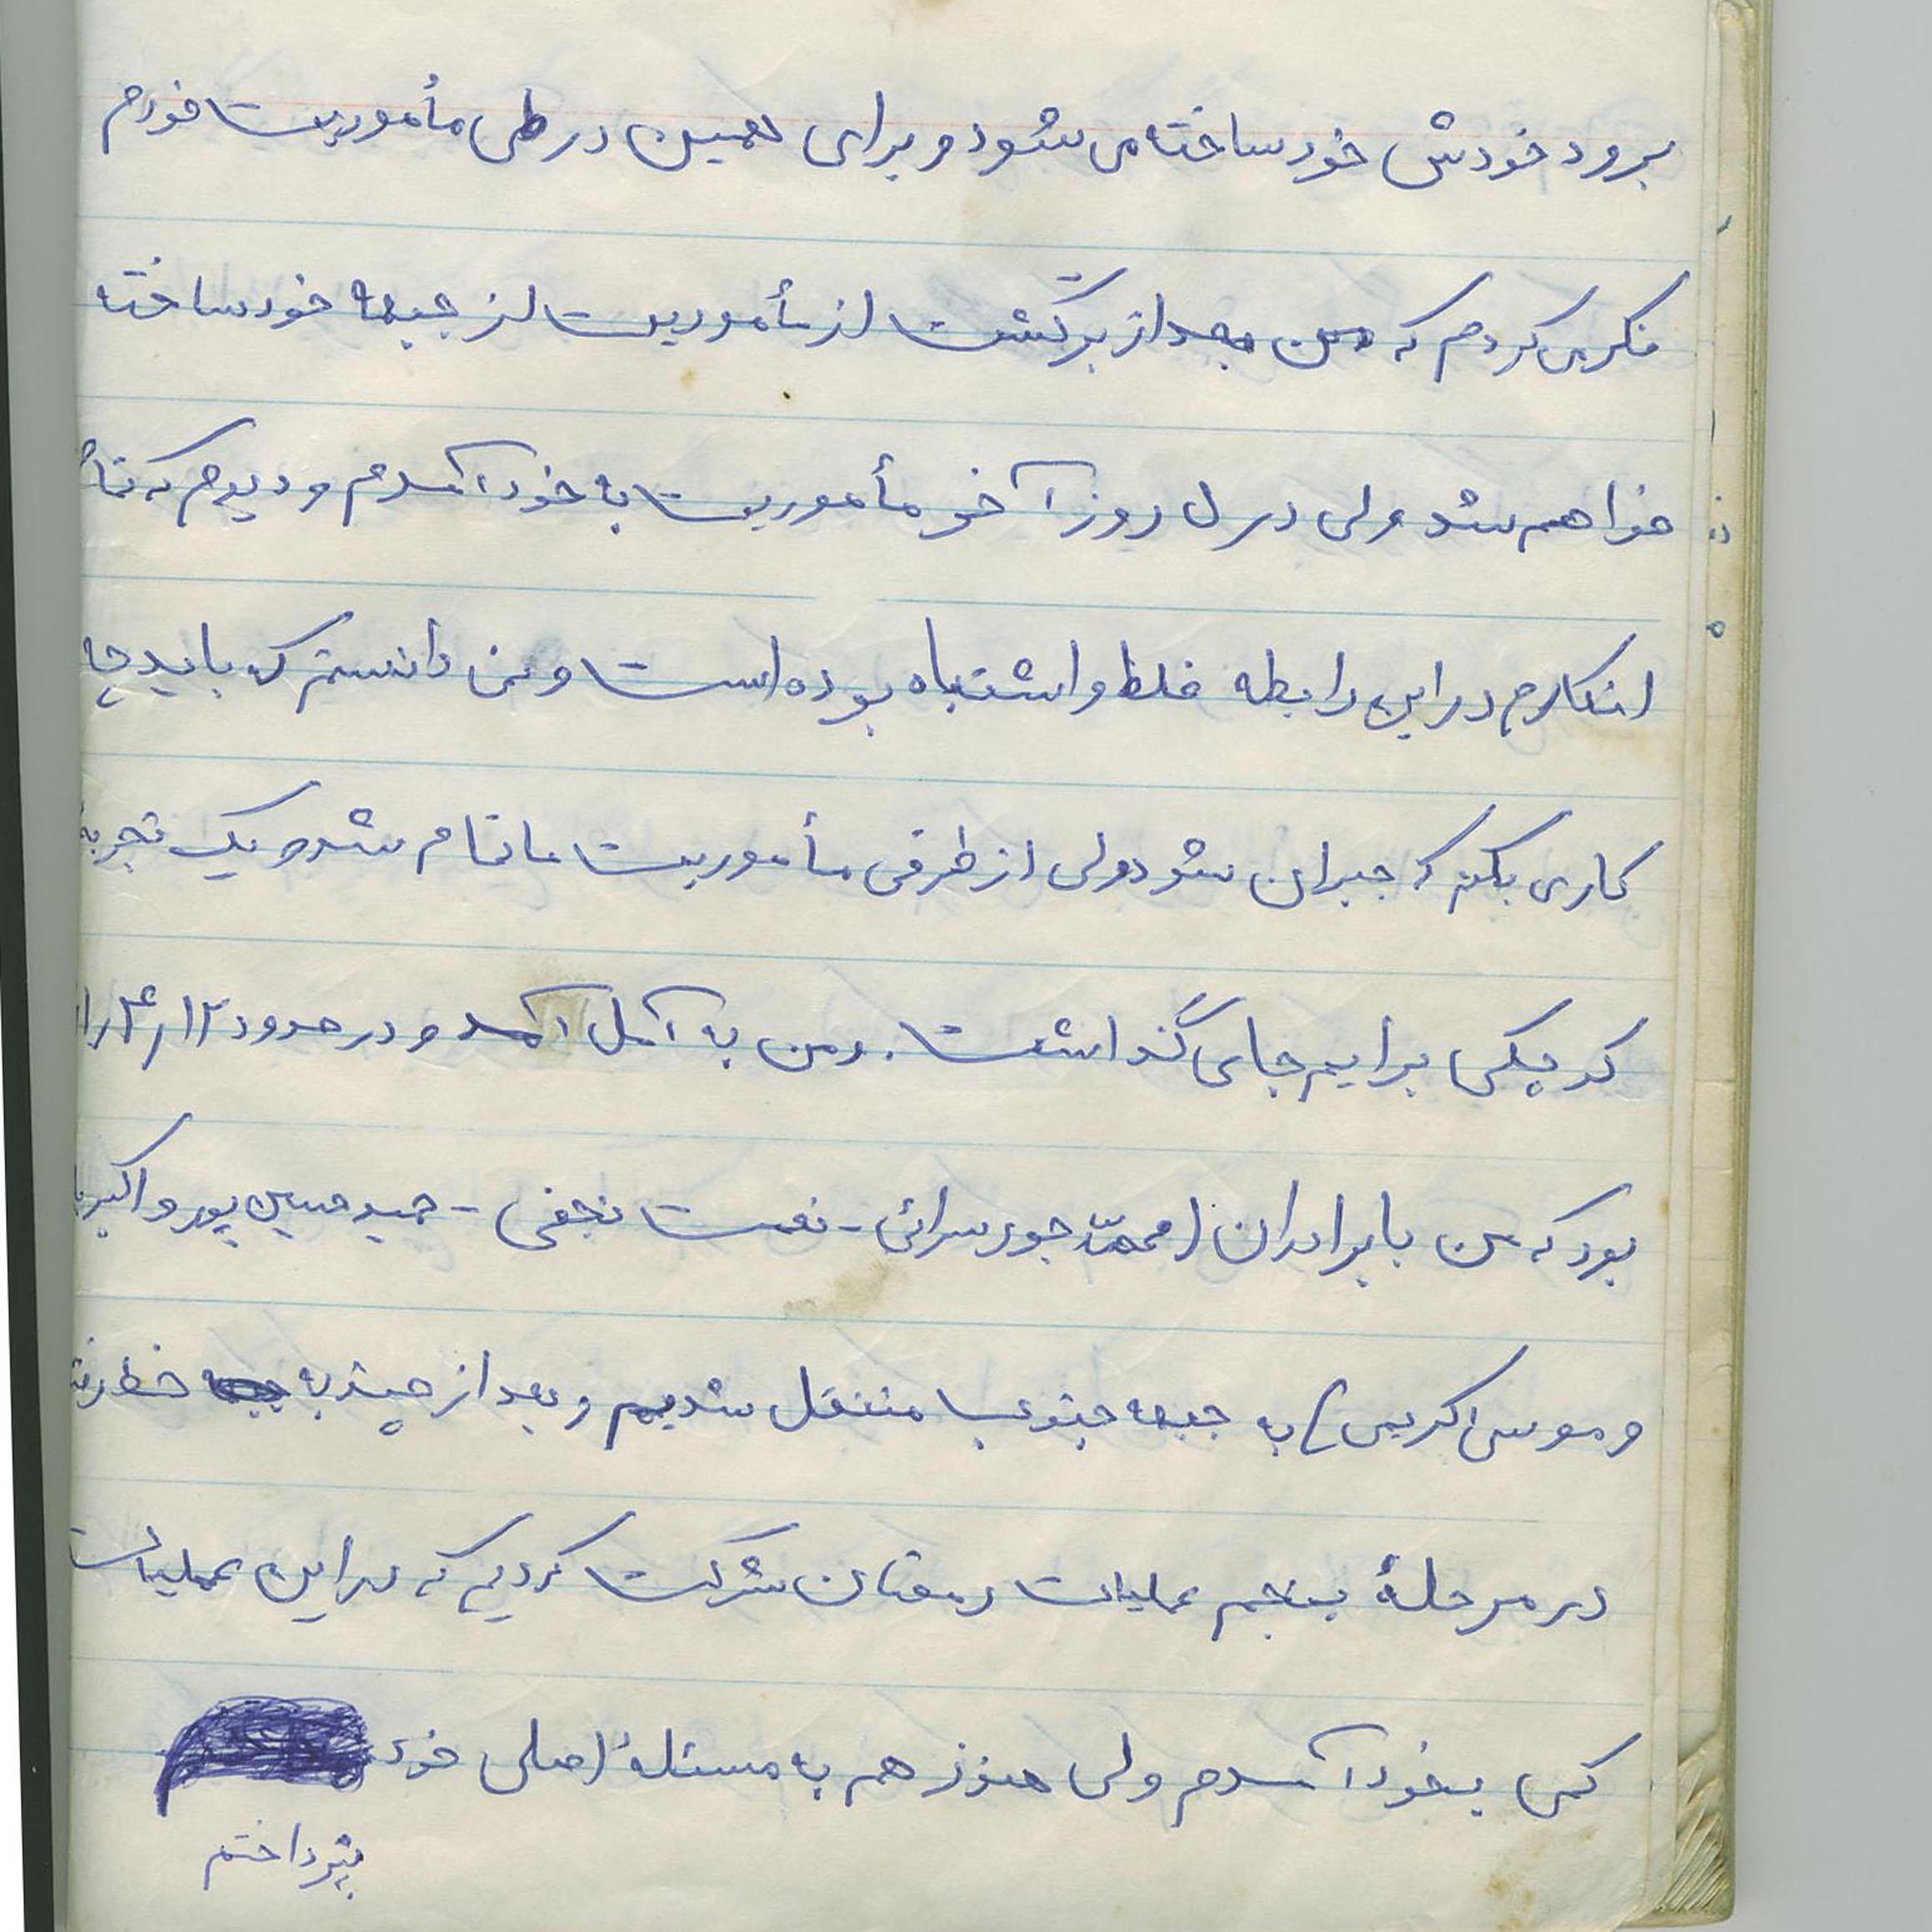 برود خودش خود ساخته می شود و برای همین در طی مأموریت خودم
فکر می کردم که من بعد از برگشت از مأموریت از جبهه خود ساخته
خواهم شد ولی در روز آخر مأموریت به خود آمدم و دیدم که تمام
افکارم در این رابطه غلط و اشتباه بوده است و نمی دانستم که باید چه
کاری بکنم که جبران شود ولی از طرفی مأموریت ما تمام شد و یک تجربه
کوچکی برایم جای گذاشت. و من به آمل آمدم و در حدود
بود که من با برادران (محمّد جورسرائی - نعمت نجفی - حمید حسین پور و اکبر
و موسی کریمی) به جبهه جنوب منتقل شدیم و بعد از چند به خط
در مرحلهٔ پنجم عملیات رمضان شرکت کردیم که در این عملیات
کمی بخود آمدم ولی هنوز هم به مسئلهٔ اصلی خود
نپرداختم